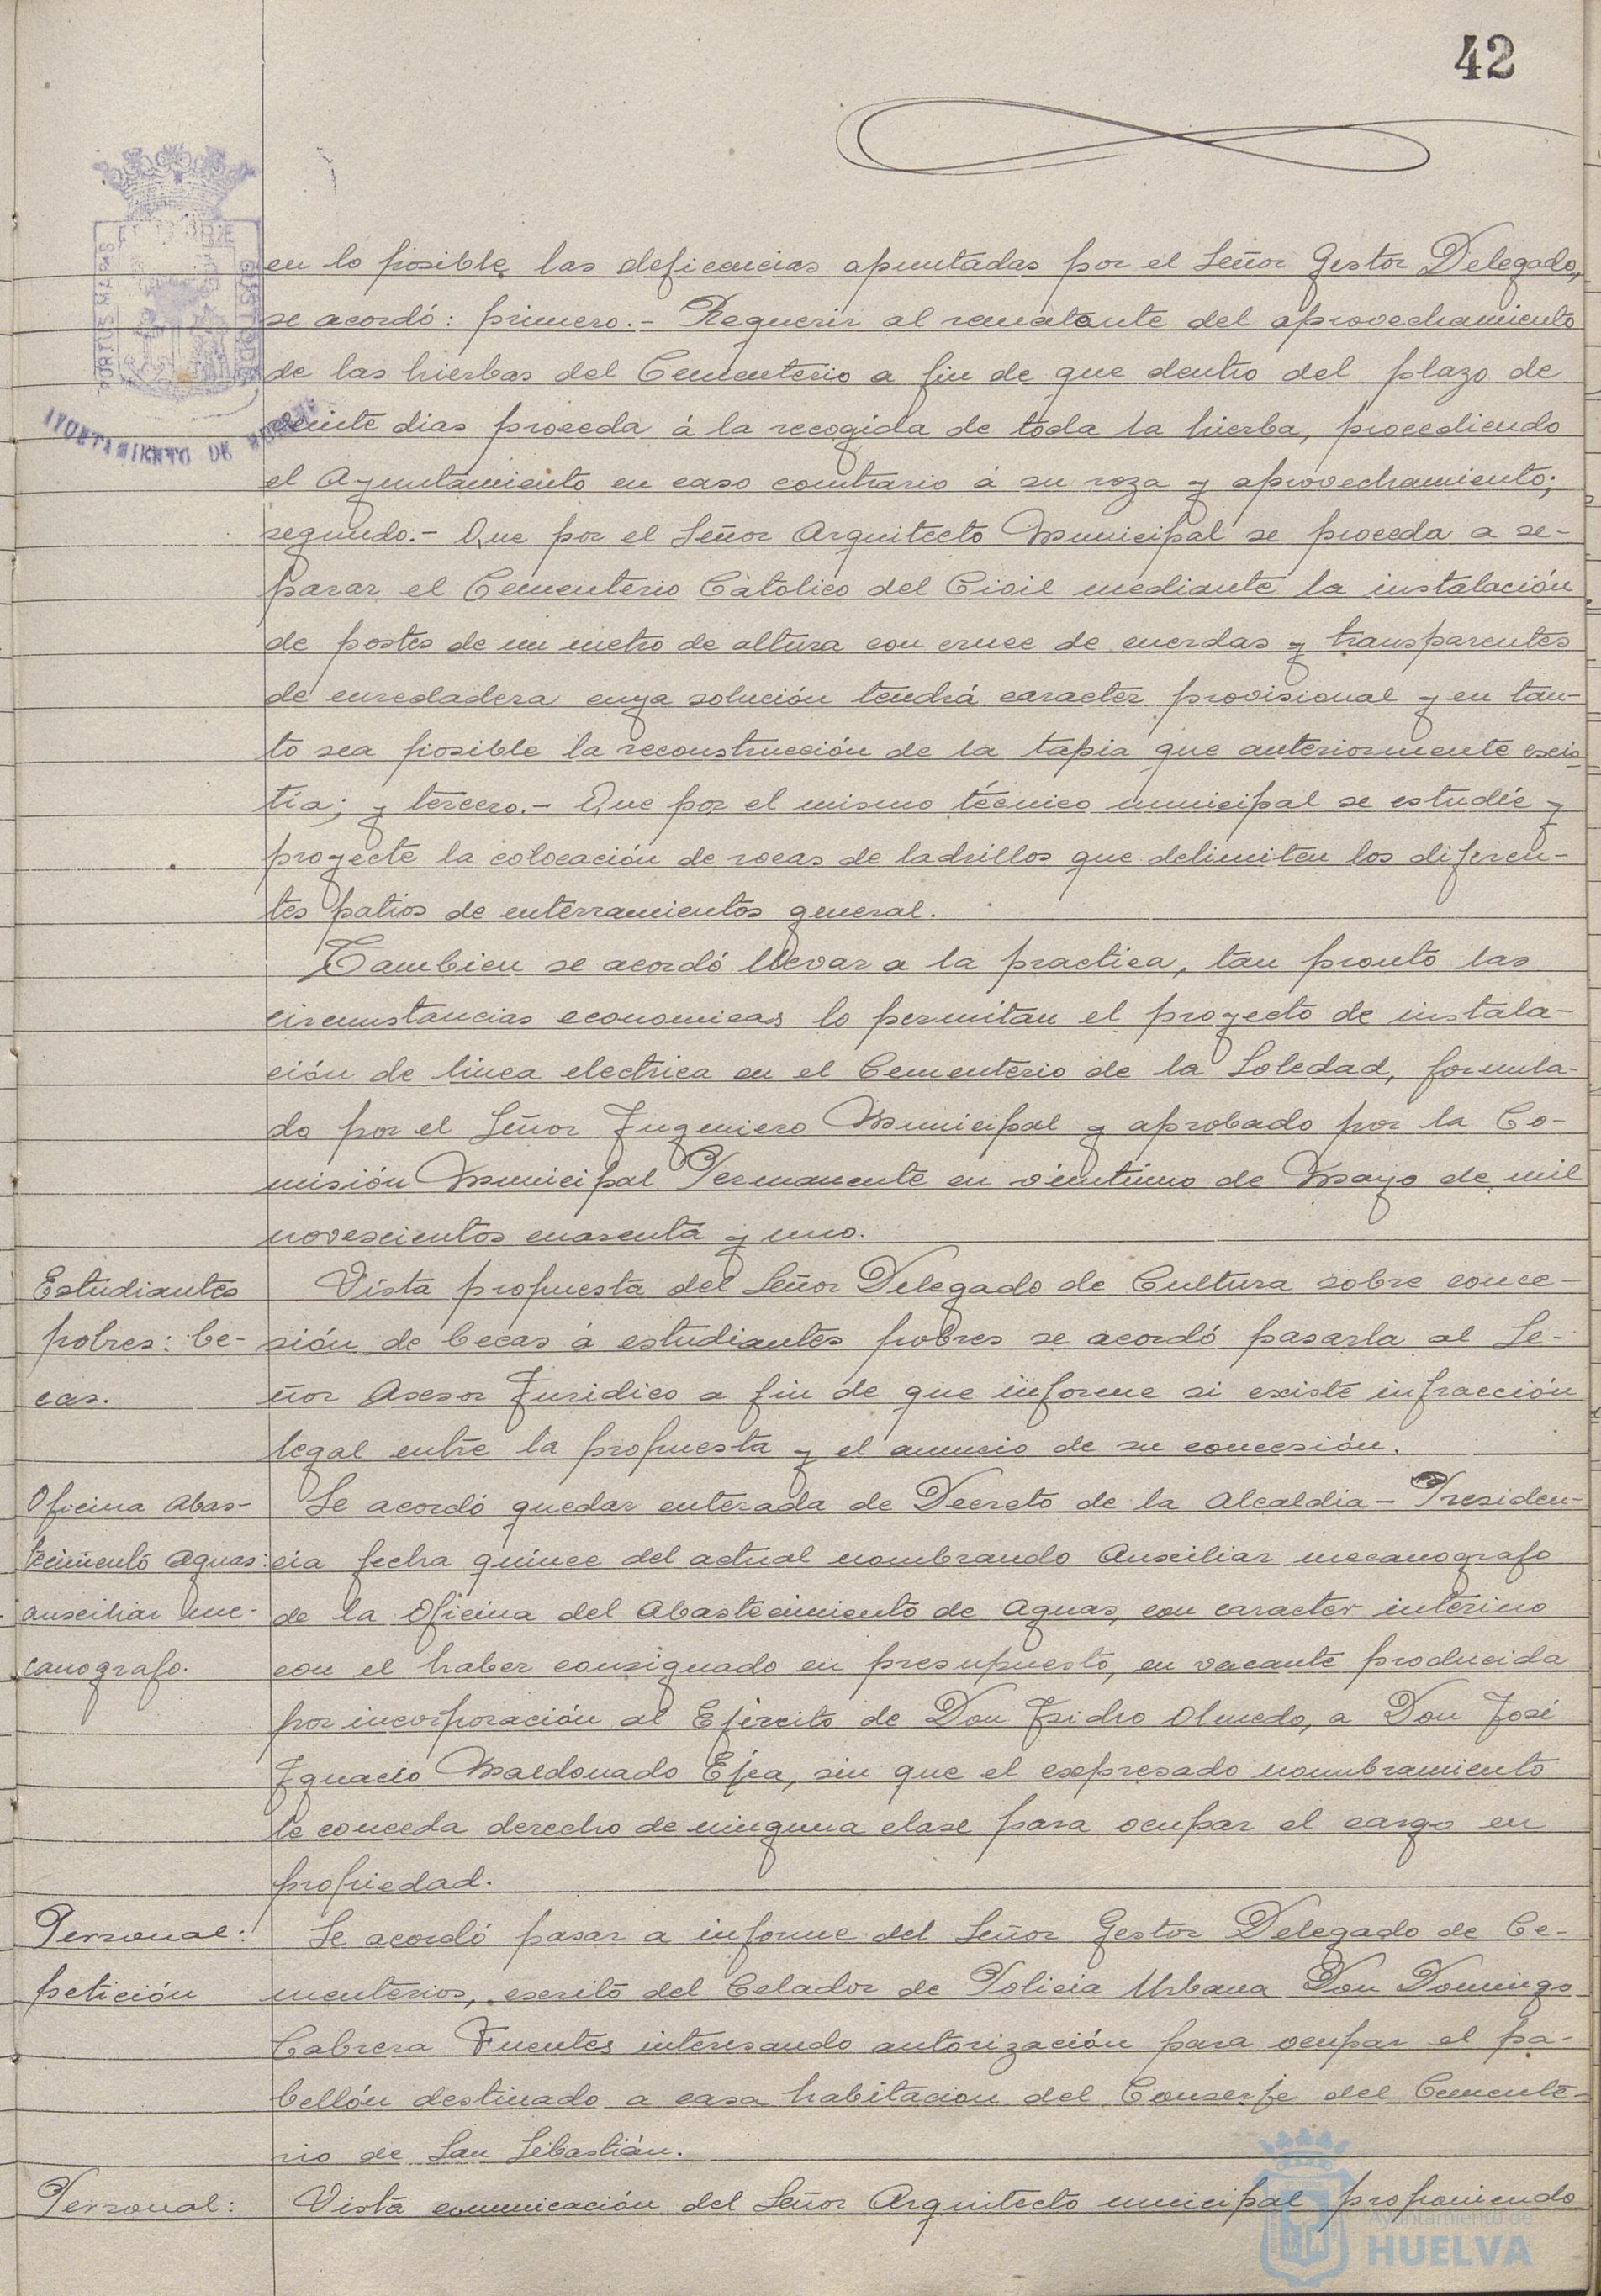 42
en lo posible las deficencias apuntadas por el Señor Gestor Delegado,
se acordó: primero.- Requerir al rematante del aprovechamiento
de las hierbas del Cementerio a fin de que dentro del plazo de
veinte dias proceda á la recogida de toda la hierba, procediendo
el Ayuntamiento en caso contrario á su roza y aprovechamiento;
segundo.- Que por el Señor Arquitecto Municipal se proceda a se-
parar el Cementerio Católico del Civil mediante la instalación
de postes de un metro de altura con cruce de cuerdas y transparentes
de enredadera cuya solución tendrá caracter provisional y en tan-
to sea posible la reconstrucción de la tapia que anteriormente exis-
tia; y tercero.- Que por el mismo técnico municipal se estudie y
proyecte la colocación de rocas de ladrillos que delimiten los diferen-
tes patios de enterramientos general.
Tambien se acordó llevar a la practica, tan pronto las
circunstancias economicas lo permitan el proyecto de instala-
ción de linea electrica en el Cementerio de la Soledad, formula-
do por el Señor Ingeniero Municipal y aprobado por la Co-
misión Municipal Permanente en vintiuno de Mayo de mil
novescientos cuarenta y uno.
Estudiantes
pobres: be-
cas.
Vista propuesta del Señor Delegado de Cultura sobre conce-
sión de becas á estudiantes pobres se acordó pasarla al Se-
ñor Asesor Juridico a fin de que informe si existe infracción
legal entre la propuesta y el anuncio de su concesión.
Oficina Abas-
tecimientó Aguas:
auxiliar me-
canografo.
Se acordó quedar enterada de Decreto de la Alcaldia - Presiden-
cia fecha quince del actual nombrando Auxiliar mecanografo
de la Oficina del Abastecimiento de Aguas, con caracter interino
con el haber consignado en presupuesto, en vacante producida
por incorporación al Ejercito de Don Isidro Olmedo, a Don José
Ignacio Maldonado Ejea, sin que el expresado nombramiento
le conceda derecho de ninguna clase para ocupar el cargo en
propiedad.
Personal:
petición
Se acordó pasar a informe del Señor Gestor Delegado de Ce-
menterios, escrito del Celador de Policia Urbana Don Domingo
Cabrera Fuentes interesando autorización para ocupar el pa-
bellón destinado a casa habitacion del Conserje del Cemente-
rio de San Sebastián.
Personal:
Vista comunicación del Señor Arquitecto municipal proponiendo
PORTUS MARIS
CUSTODIA
AYUNTAMIENTO DE HUELVA
Ayuntamiento de
HUELVA